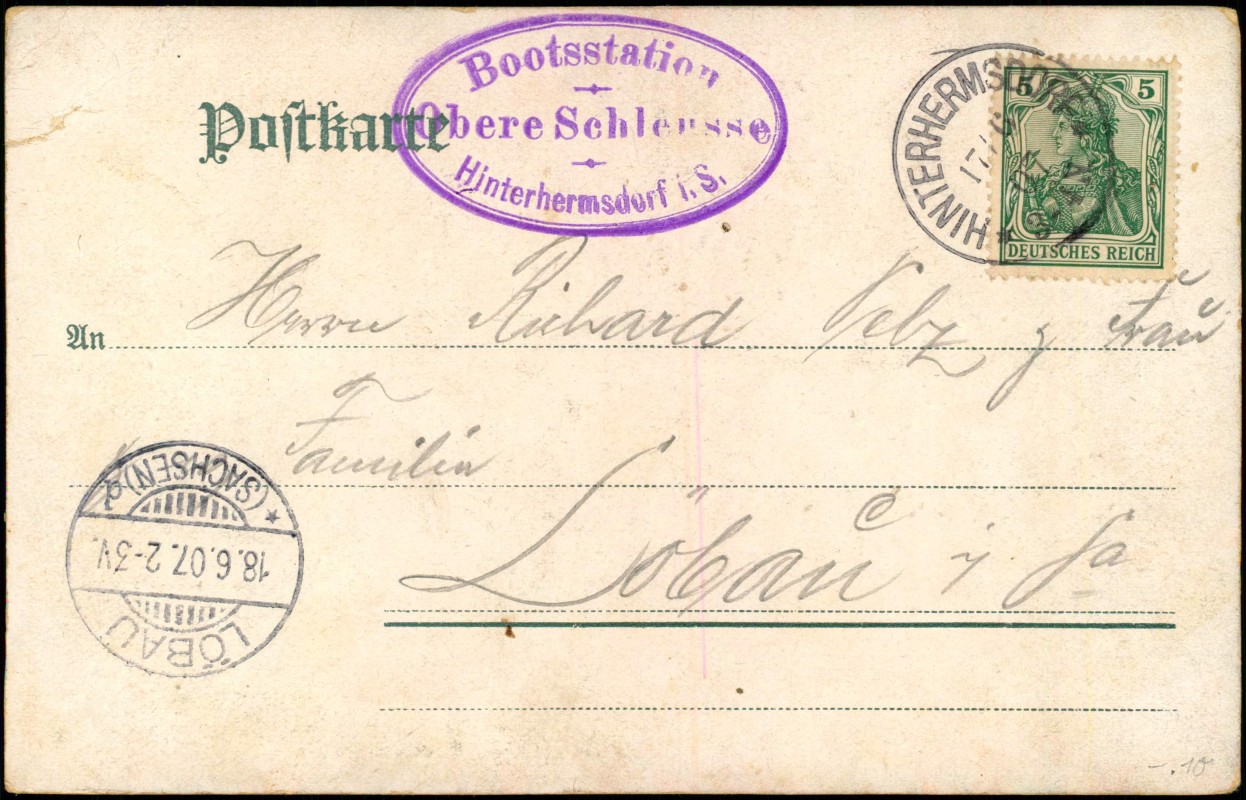 Bootsstation
Obere Schleusse
Hinterhermsdorf i. S.
Postkarte
HINTERHERMSDORF
17/6
5 5
DEUTSCHES REICH
An Herrn Richard Pelz y Frau
Familie
Löbau i Sa
(SACHSEN)
18.6.07. 2-3V.
LÖBAU
-.10